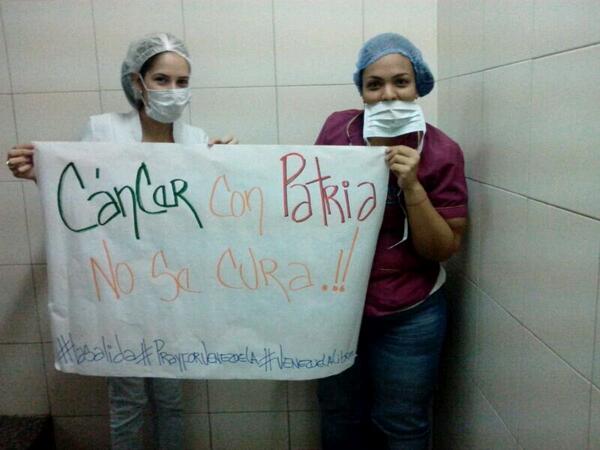 Cáncer con Patria
No Se Cura.!!
#LaSalida #PrayForVenezuela #VenezuelaLibre